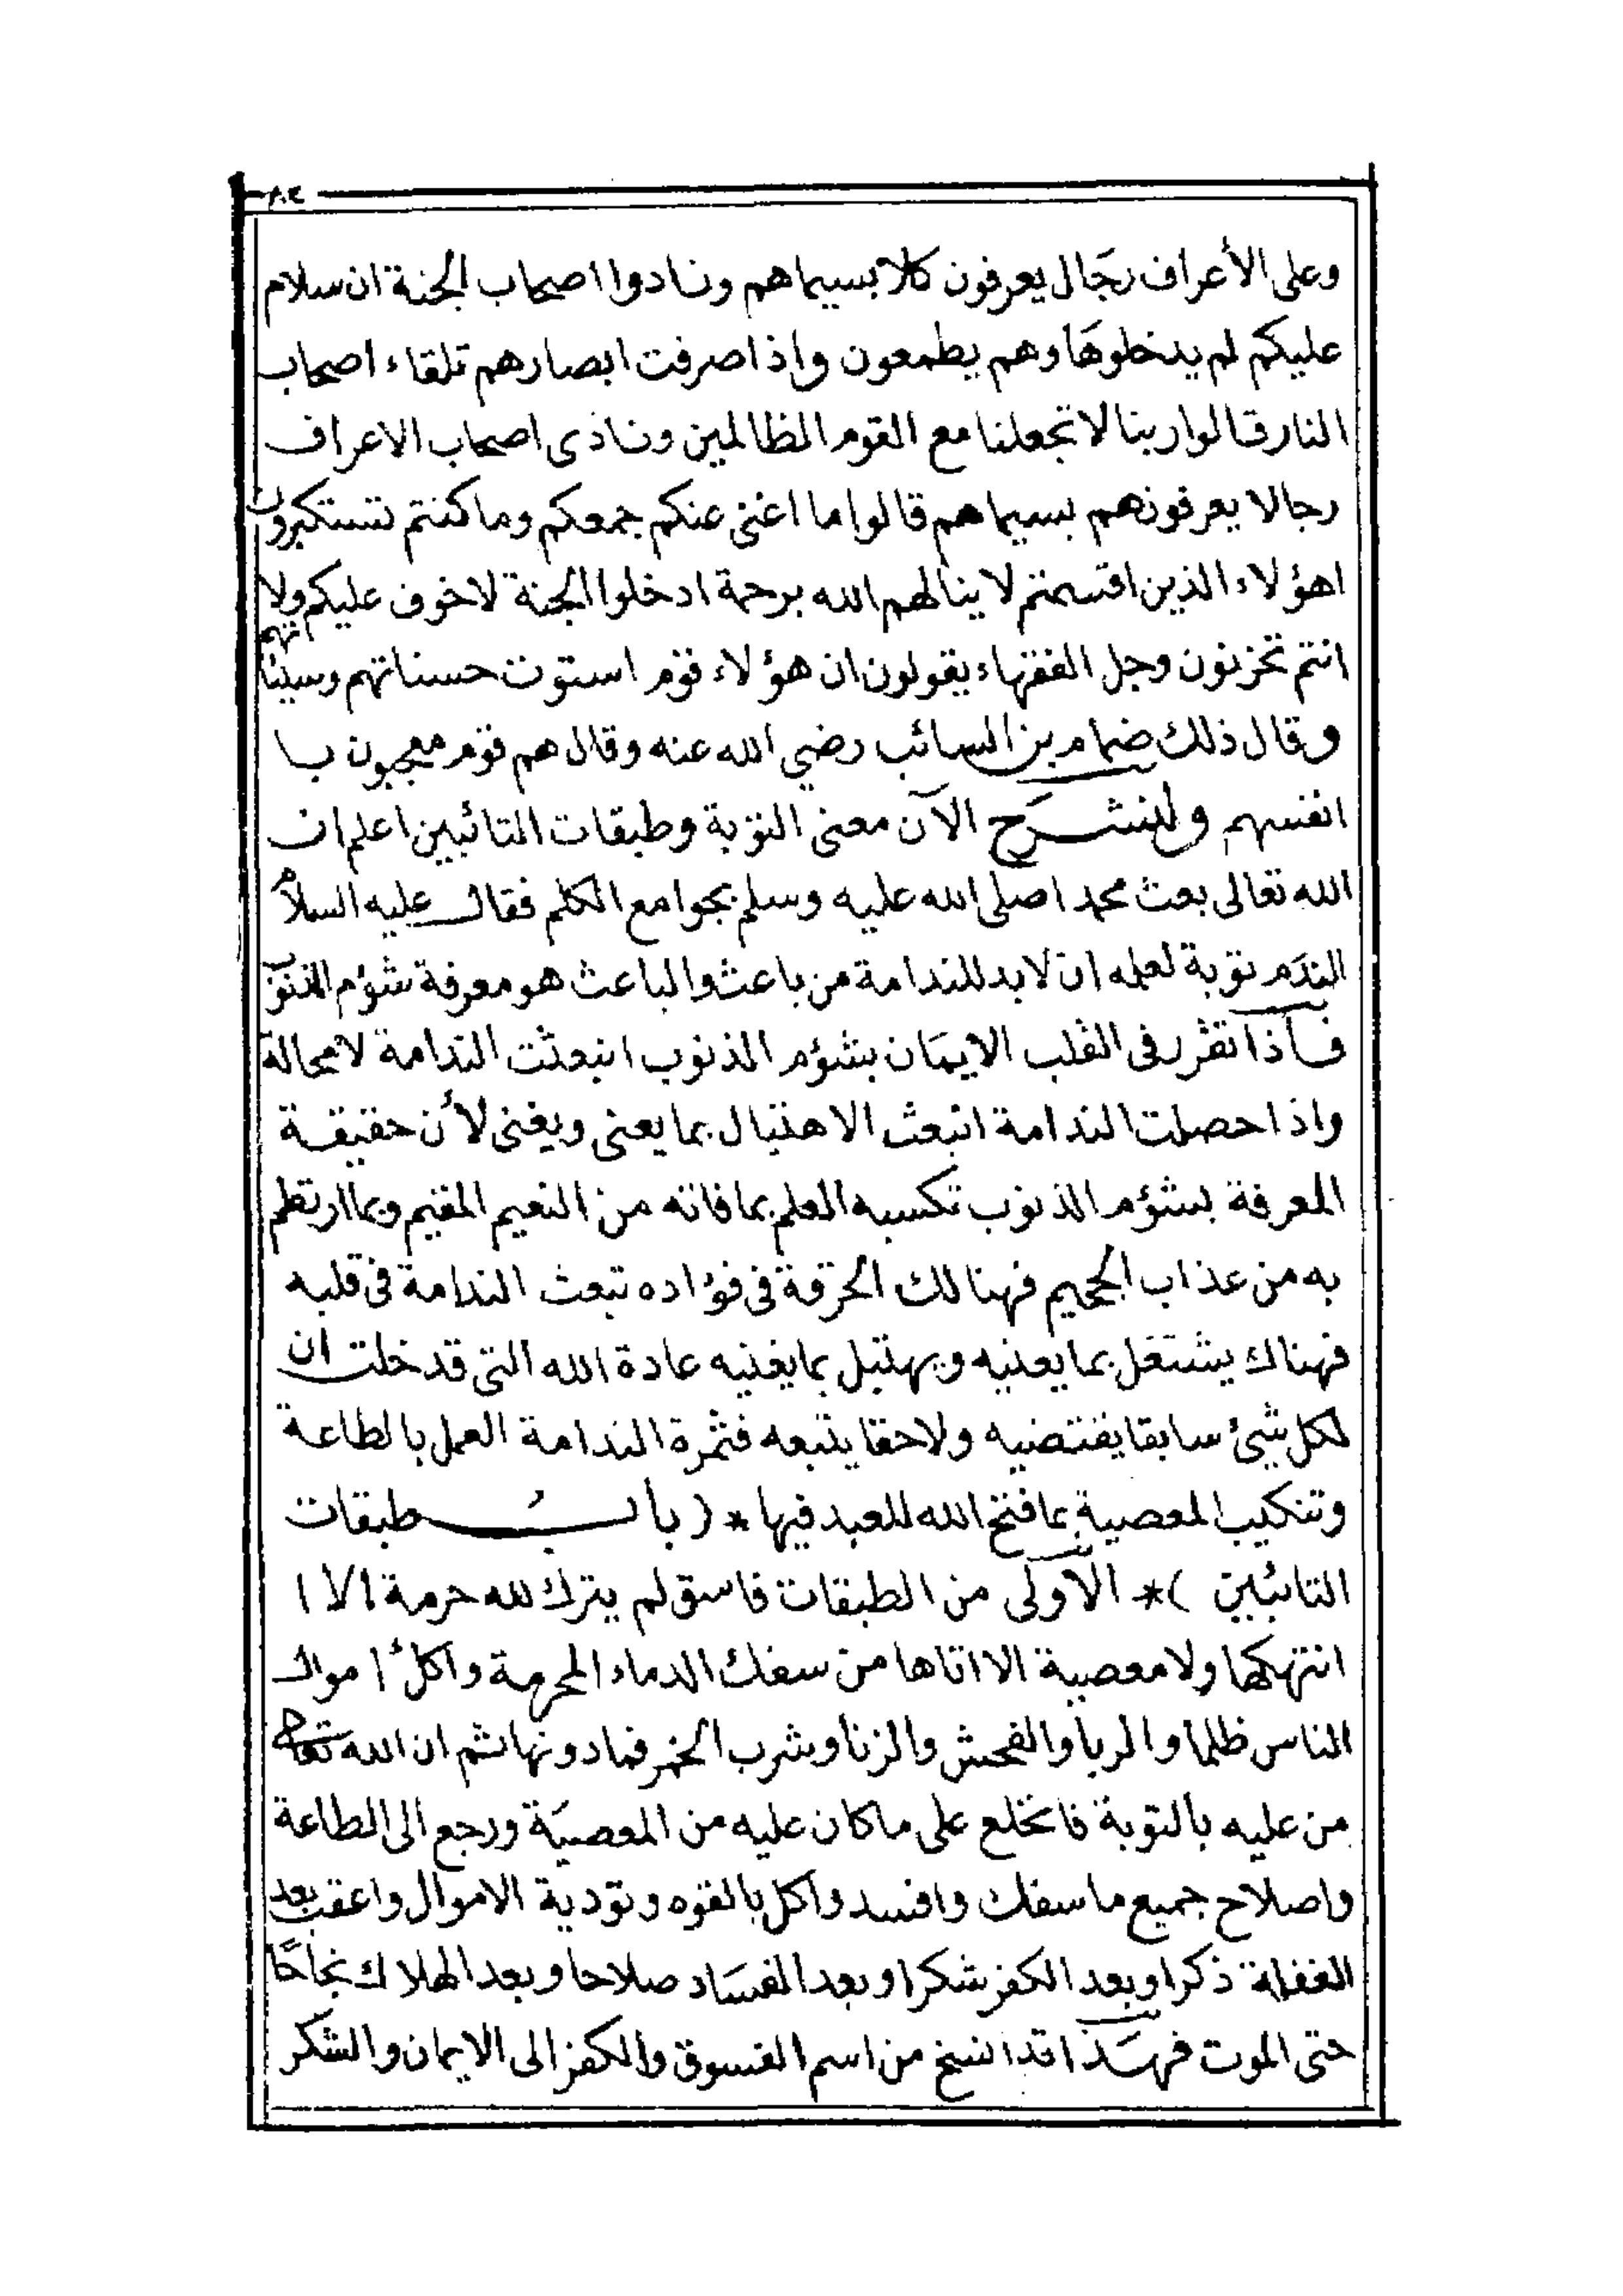 ٨٤
وعلى الأعراف رجال يعرفون كلا بسيماهم ونادوا اصحاب الجنة ان سلام
عليكم لم يدخلوها وهم يطمعون واذا صرفت ابصارهم تلقاء اصحاب
النار قالوا ربنا لا تجعلنا مع القوم الظالمين ونادى اصحاب الاعراف
رجالا يعرفونهم بسيماهم قالوا ما اغنى عنكم جمعكم وما كنتم تستكبرون
اهؤلاء الذين اقسمتم لا ينالهم الله برحمة ادخلوا الجنة لاخوف عليكم ولا
انتم تحزنون وجل الفقهاء يقولون ان هؤلاء قوم استوت حسناتهم وسيئاتهم
وقال ذلك ضمام بن السائب رضي الله عنه وقال هم قوم معجبون با
انفسهم ولنشرح الآن معنى التوبة وطبقات التائبين اعلم ان
الله تعالى بعث محمدا صلى الله عليه وسلم بجوامع الكلم فقال عليه السلام
الندم توبة لعلمه ان لابد للندامة من باعث والباعث هو معرفة شؤم الذنوب
فاذا تقرر فى القلب الايمان بشؤم الذنوب انبعثت الندامة لامحالة
واذا حصلت الندامة انبعث الاهتبال بما يعنى ويغنى لأن حقيقة
المعرفة بشؤم الذنوب تكسبه العلم بما فاته من النعيم المقيم وبما ارتطم
به من عذاب الجحيم فهنالك الحرقة فى فؤاده تبعث الندامة فى قلبه
فهناك يشتغل بما يعنيه ويهتبل بما يغنيه عادة الله التى قد خلت ان
لكل شيئ سابقا يقتضيه ولاحقا يتبعه فثمرة الندامة العمل بالطاعة
وتنكيب المعصية بما فتح الله للعبد فيها * ( باب طبقات
التائبين )* الأولى من الطبقات فاسق لم يترك لله حرمة الا ا
انتهكها ولا معصية الا اتاها من سفك الدماء المحرمة واكل اموال
الناس ظلما والربا والفحش والزنا وشرب الخمر فما دونها ثم ان الله تعالى
من عليه بالتوبة فانخلع على ماكان عليه من المعصية ورجع الى الطاعة
واصلاح جميع ما سفك وافسد واكل بالقوه وتودية الاموال واعقب بعد
الغفلة ذكرا وبعد الكفر شكرا وبعد الفساد صلاحا وبعد الهلاك نجاحًا
حتى الموت فهذا قد انسخ من اسم الفسوق والكفر الى الايمان والشكر